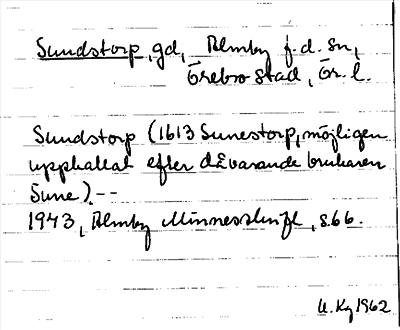 Sundstorp, gd, Almby f.d. sn,
Örebro stad, Ör. l.
Sundstorp (1613 Sunestorp, möjligen
uppkallat efter dåvarande brukaren
Sune). --
1943, Almby Minnesskrift, s. 66.
U. Kg 1962